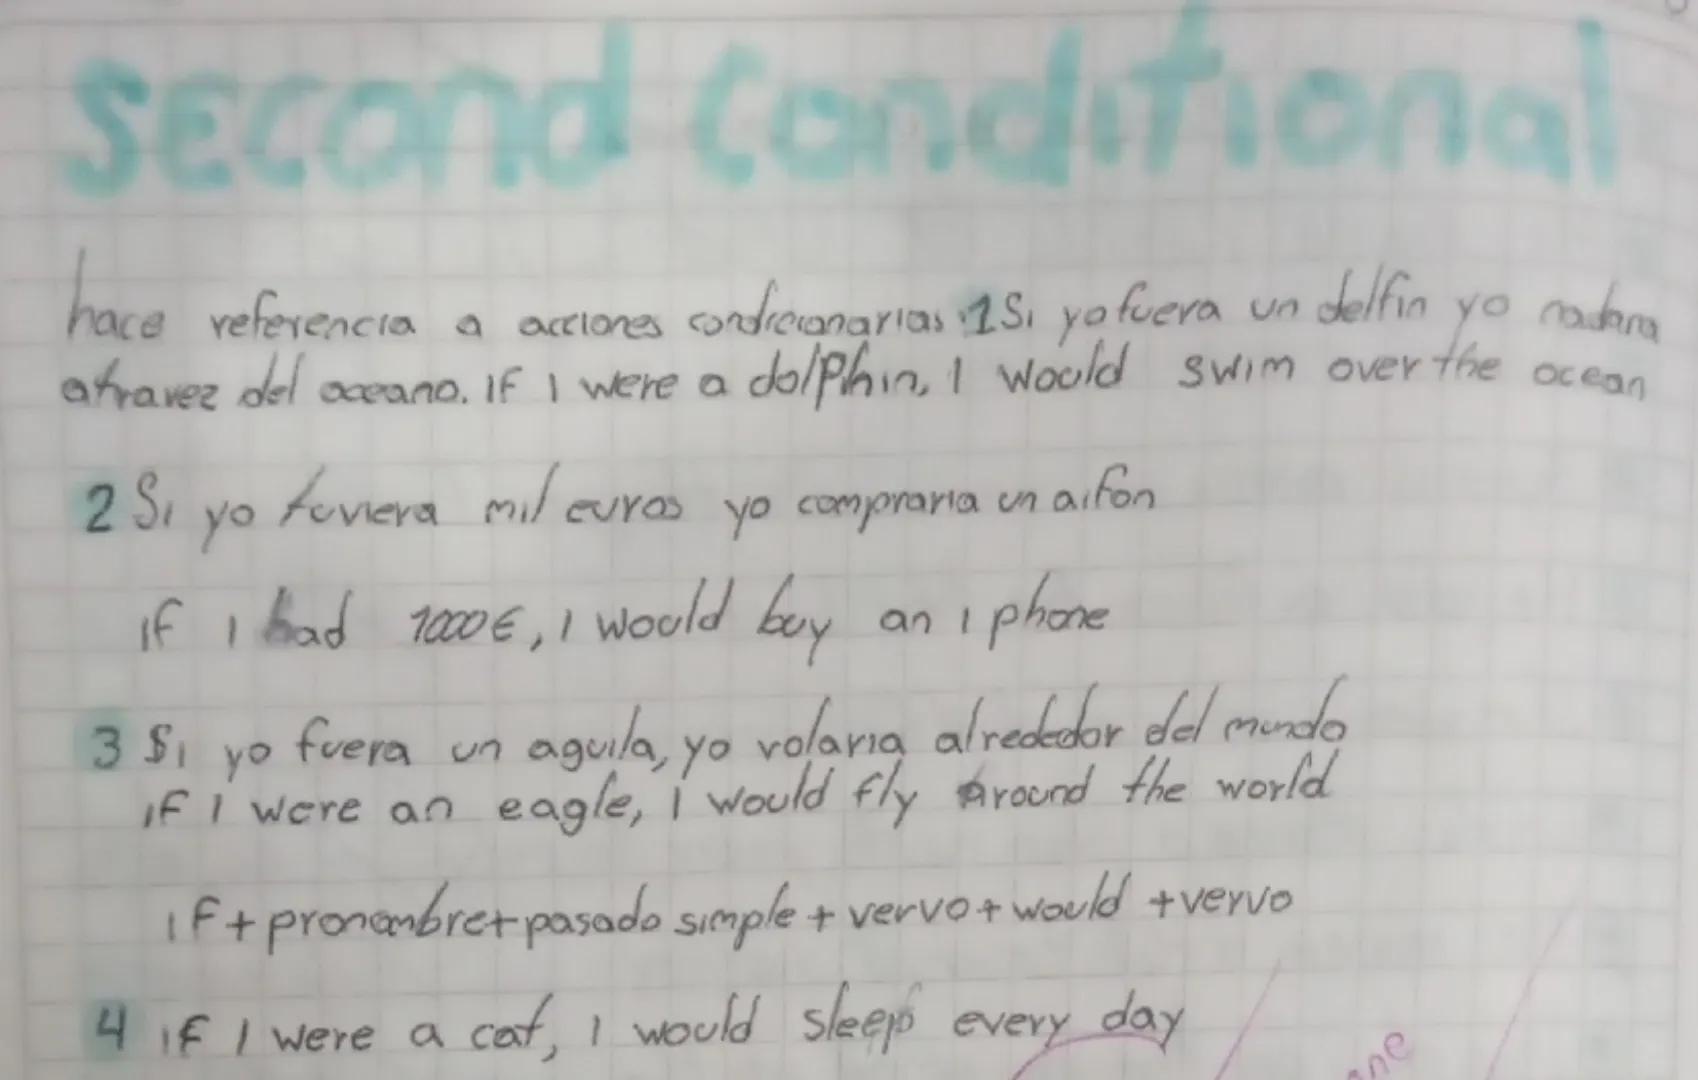 Second Conditional
hace referencia a acciones condicionarias 1 Si yo fuera un delfin yo nadara
atravez del oceano. IF I were a dolphin, I would swim over the ocean
2 Si yo tuviera mil euros yo compraria un aifon
if I had 1000€, I would buy an iphone
3 Si yo fuera un aguila, yo volaria alrededor del mundo
if I were an eagle, I would fly Around the world
if + pronombre + pasado simple + vervo + would + vervo
4 if I were a cat, I would sleep every day